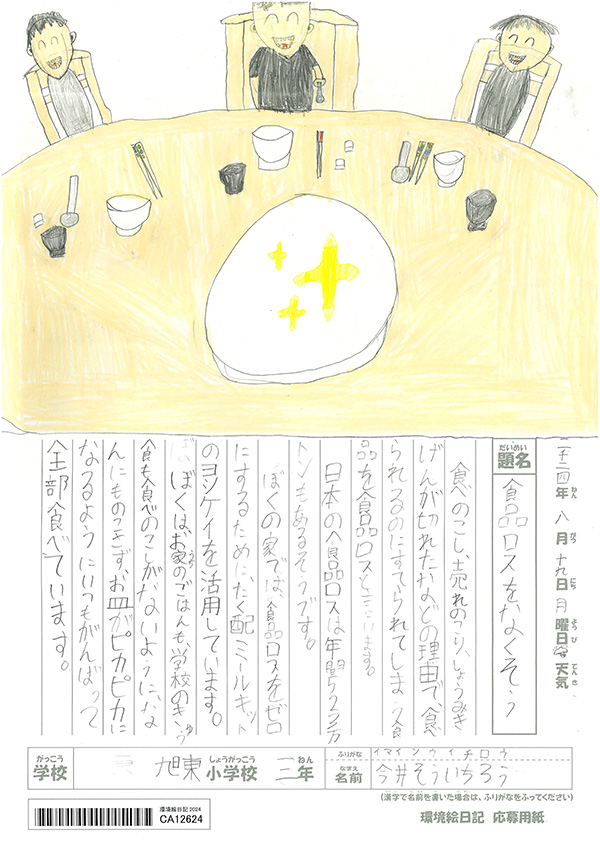 二千二四年 八月 十九日 月曜日 天気
ねん がつ にち ようび てんき
だいめい
題名 食品ロスをなくそう
食べのこし、売れのこり、しょうみき
げんが切れたなどの理由で、食べ
られるのにすてられてしまう食
品を食品ロスと言います。
日本の食品ロスは年間523万
トンもあるそうです。
ぼくの家では、食品ロスをゼロ
にするために、たく配ミールキット
のヨシケイを活用しています。
ぼくはお家のごはんも、学校のきゅう
食も食べのこしがないように、な
んにものこさず、お皿がピカピカに
なるようにいつもがんばって
全部食べています。
がっこう
学校 旭東 しょうがっこう 小学校 三 ねん 年
ふりがな イマイソウイチロウ
なまえ
名前 今井そういちろう
(漢字で名前を書いた場合は、ふりがなをふってください)
環境絵日記 応募用紙
環境絵日記2024
CA12624